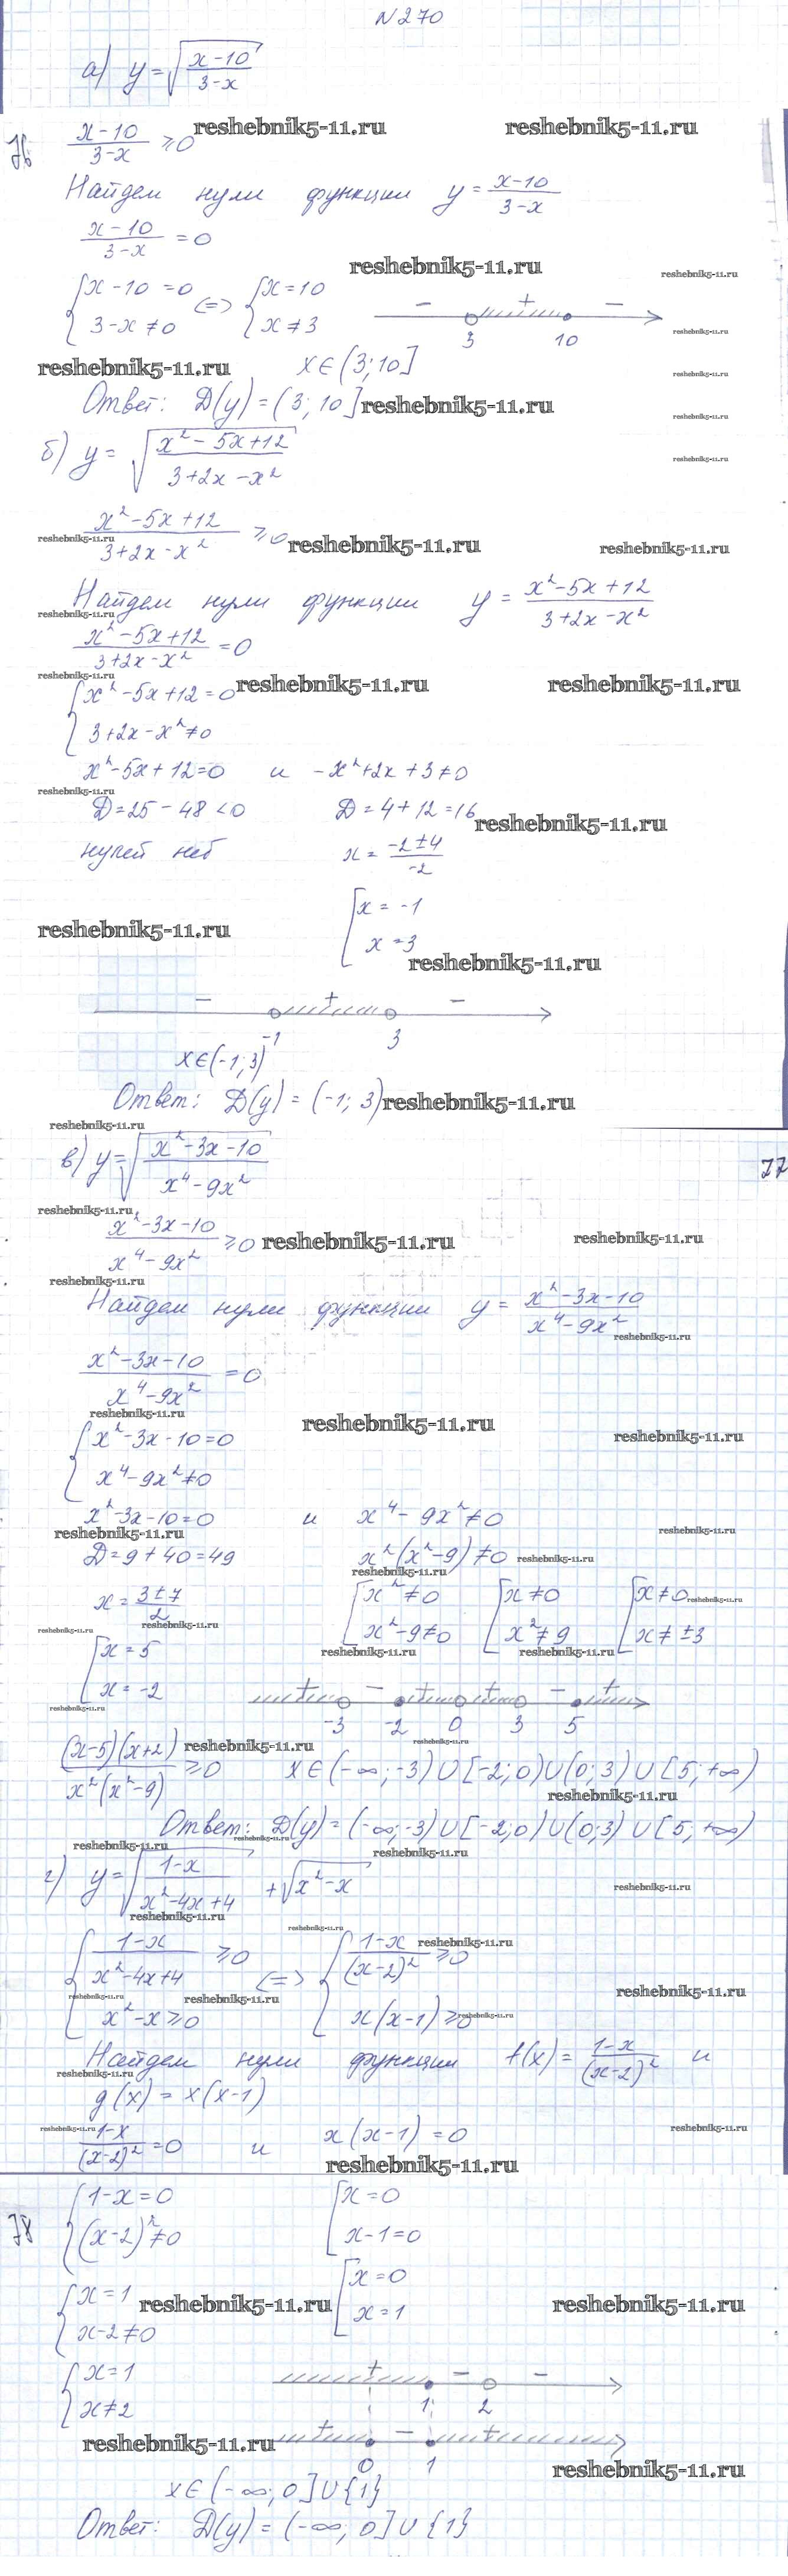 N270
а) y = √((x-10)/(3-x))
76
(x-10)/(3-x) ≥ 0
reshebnik5-11.ru reshebnik5-11.ru
Найдем нули функции y = (x-10)/(3-x)
(x-10)/(3-x) = 0
reshebnik5-11.ru reshebnik5-11.ru
{x-10=0 <=> {x=10
{3-x≠0 {x≠3
- + -
3 10
reshebnik5-11.ru
reshebnik5-11.ru x∈(3;10] reshebnik5-11.ru
Ответ: D(y) = (3; 10] reshebnik5-11.ru
reshebnik5-11.ru
б) y = √((x²-5x+12)/(3+2x-x²))
reshebnik5-11.ru
(x²-5x+12)/(3+2x-x²) ≥ 0
reshebnik5-11.ru reshebnik5-11.ru reshebnik5-11.ru
Найдем нули функции y = (x²-5x+12)/(3+2x-x²)
reshebnik5-11.ru
(x²-5x+12)/(3+2x-x²) = 0
reshebnik5-11.ru
{x²-5x+12=0 reshebnik5-11.ru reshebnik5-11.ru
{3+2x-x²≠0
x²-5x+12=0 и -x²+2x+3≠0
reshebnik5-11.ru
D=25-48<0 D=4+12=16
reshebnik5-11.ru
нулей нет x = (-2±4)/(-2)
[x = -1
reshebnik5-11.ru
[x = 3
reshebnik5-11.ru
- + -
-1 3
x∈(-1;3)
Ответ: D(y) = (-1; 3) reshebnik5-11.ru
reshebnik5-11.ru
в) y = √((x²-3x-10)/(x⁴-9x²))
77
reshebnik5-11.ru
(x²-3x-10)/(x⁴-9x²) ≥ 0 reshebnik5-11.ru reshebnik5-11.ru
reshebnik5-11.ru
Найдем нули функции y = (x²-3x-10)/(x⁴-9x²)
reshebnik5-11.ru
(x²-3x-10)/(x⁴-9x²) = 0
reshebnik5-11.ru reshebnik5-11.ru
{x²-3x-10=0 reshebnik5-11.ru
{x⁴-9x²≠0
x²-3x-10=0 и x⁴-9x²≠0
reshebnik5-11.ru reshebnik5-11.ru
D=9+40=49 x²(x²-9)≠0 reshebnik5-11.ru
reshebnik5-11.ru
x = (3±7)/2 [x²≠0 [x≠0 [x≠0 reshebnik5-11.ru
reshebnik5-11.ru reshebnik5-11.ru [x²-9≠0 [x²≠9 [x≠±3
[x=5 reshebnik5-11.ru reshebnik5-11.ru
[x=-2
+ - + + - +
reshebnik5-11.ru
-3 -2 0 3 5
reshebnik5-11.ru reshebnik5-11.ru
((x-5)(x+2))/(x²(x²-9)) ≥ 0 x∈(-∞;-3)∪[-2;0)∪(0;3)∪[5;+∞)
reshebnik5-11.ru
Ответ: D(y)=(-∞;-3)∪[-2;0)∪(0;3)∪[5;+∞)
reshebnik5-11.ru reshebnik5-11.ru reshebnik5-11.ru
г) y = √((1-x)/(x²-4x+4)) + √(x²-x)
reshebnik5-11.ru
reshebnik5-11.ru reshebnik5-11.ru
{(1-x)/(x²-4x+4) ≥ 0 <=> {(1-x)/(x-2)² ≥ 0 reshebnik5-11.ru
reshebnik5-11.ru reshebnik5-11.ru reshebnik5-11.ru
{x²-x≥0 {x(x-1)≥0 reshebnik5-11.ru
Найдем нули функции f(x) = (1-x)/(x-2)² и
reshebnik5-11.ru
g(x) = x(x-1)
reshebnik5-11.ru reshebnik5-11.ru
(1-x)/(x-2)² = 0 и x(x-1)=0
reshebnik5-11.ru
78
{1-x=0 [x=0
{(x-2)²≠0 [x-1=0
{x=1 reshebnik5-11.ru [x=0 reshebnik5-11.ru
{x-2≠0 [x=1
{x=1 + - -
{x≠2 1 2
reshebnik5-11.ru + - +
0 1 reshebnik5-11.ru
x∈(-∞;0]∪{1}
Ответ: D(y) = (-∞; 0]∪{1}